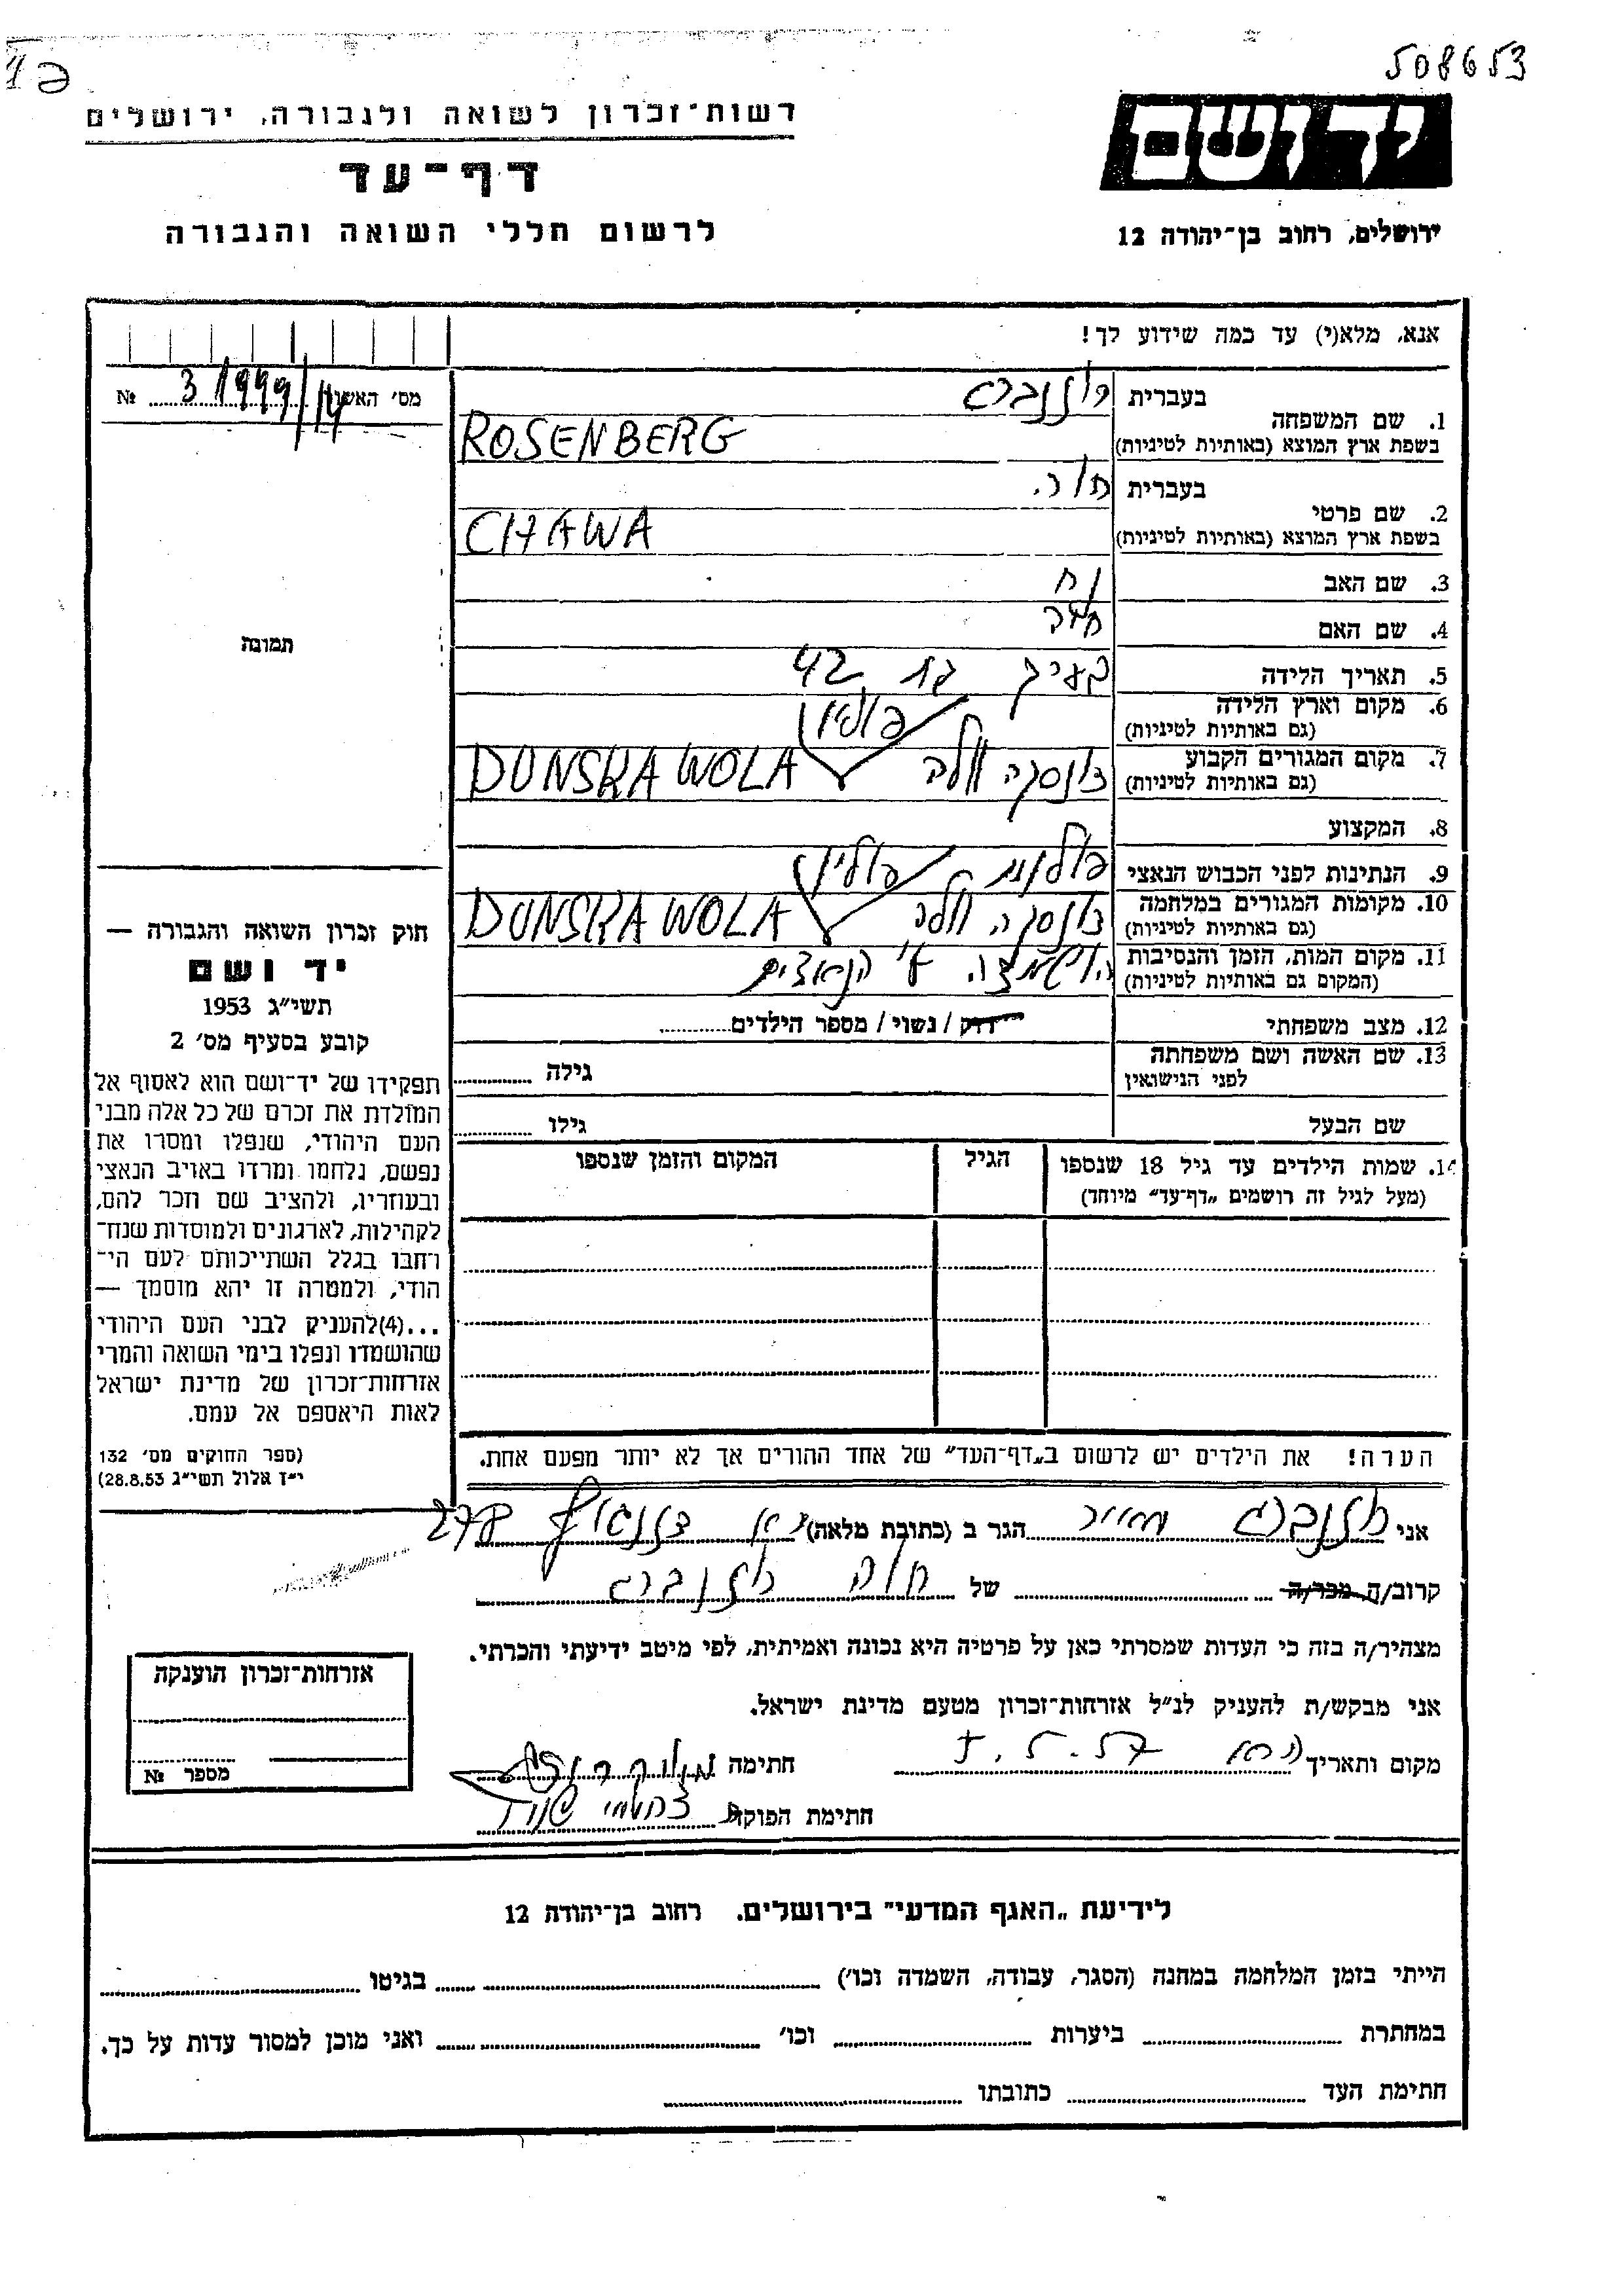 508653
רשות־זכרון לשואה ולגבורה, ירושלים
דף־עד
לרשום חללי השואה והגבורה
יד ושם
ירושלים, רחוב בן־יהודה 12
אנא, מלא(י) עד כמה שידוע לך!
מס׳ האשור 31999/14 №
תמונה
1. שם המשפחה
בעברית רוזנברג
בשפת ארץ המוצא (באותיות לטיניות) ROSENBERG
2. שם פרטי
בעברית חוה
בשפת ארץ המוצא (באותיות לטיניות) CHAWA
3. שם האב נח
4. שם האם חיה
5. תאריך הלידה בערך בת 42
6. מקום וארץ הלידה
(גם באותיות לטיניות)
פולין
7. מקום המגורים הקבוע
(גם באותיות לטיניות)
דונסקה וולה DUNSKA WOLA
8. המקצוע
9. הנתינות לפני הכבוש הנאצי פולנית פולין
10. מקומות המגורים במלחמה
(גם באותיות לטיניות)
דונסקה וולה DUNSKA WOLA
11. מקום המות, הזמן והנסיבות
(המקום גם באותיות לטיניות)
הושמדה ע״י הנאצים
12. מצב משפחתי רווק / נשוי / מספר הילדים
13. שם האשה ושם משפחתה
לפני הנישואין
גילה
שם הבעל גילו
14. שמות הילדים עד גיל 18 שנספו
(מעל לגיל זה רושמים „דף־עד״ מיוחד)
הגיל
המקום והזמן שנספו
הערה! את הילדים יש לרשום ב„דף־העד״ של אחד ההורים אך לא יותר מפעם אחת.
חוק זכרון השואה והגבורה —
יד ושם
תשי״ג 1953
קובע בסעיף מס׳ 2
תפקידו של יד־ושם הוא לאסוף אל
המולדת את זכרם של כל אלה מבני
העם היהודי, שנפלו ומסרו את
נפשם, נלחמו ומרדו באויב הנאצי
ובעוזריו, ולהציב שם וזכר להם,
לקהילות, לארגונים ולמוסדות שנח־
רחבו בגלל השתייכותם לעם הי־
הודי, ולמטרה זו יהא מוסמך —
...(4)להעניק לבני העם היהודי
שהושמדו ונפלו בימי השואה והמרי
אזרחות־זכרון של מדינת ישראל
לאות היאספם אל עמם.
(ספר החוקים מס׳ 132
י״ז אלול תשי״ג 28.8.53)
אני רוזנברג הגר ב (כתובת מלאה) 278
קרוב/ה מכר/ה של חוה רוזנברג
מצהיר/ה בזה כי העדות שמסרתי כאן על פרטיה היא נכונה ואמיתית, לפי מיטב ידיעתי והכרתי.
אני מבקש/ת להעניק לנ״ל אזרחות־זכרון מטעם מדינת ישראל.
מקום ותאריך 5.57 חתימה
חתימת הפוקד
אזרחות־זכרון הוענקה
מספר №
לידיעת „האגף המדעי״ בירושלים, רחוב בן־יהודה 12
הייתי בזמן המלחמה במחנה (הסגר, עבודה, השמדה וכו׳) בגיטו
במחתרת ביערות וכו׳ ואני מוכן למסור עדות על כך.
חתימת העד כתובתו